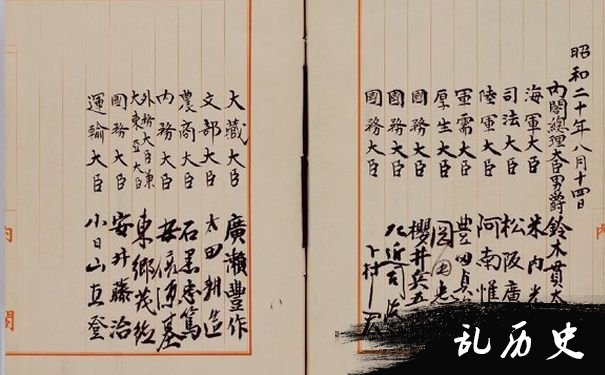 昭和二十年八月十四日
内閣總理大臣男爵鈴木貫太
海軍大臣 米内光
司法大臣 松阪廣
陸軍大臣 阿南惟
軍需大臣 豊田貞
厚生大臣 岡田忠
國務大臣 櫻井兵五
國務大臣 左近司政
國務大臣 下村
大藏大臣 廣瀬豊作
文部大臣 太田耕造
農商大臣 石黒忠篤
内務大臣 安倍源基
外務大臣兼
大東亞大臣 東郷茂徳
國務大臣 安井藤治
運輸大臣 小日山直登
内閣
乱历史